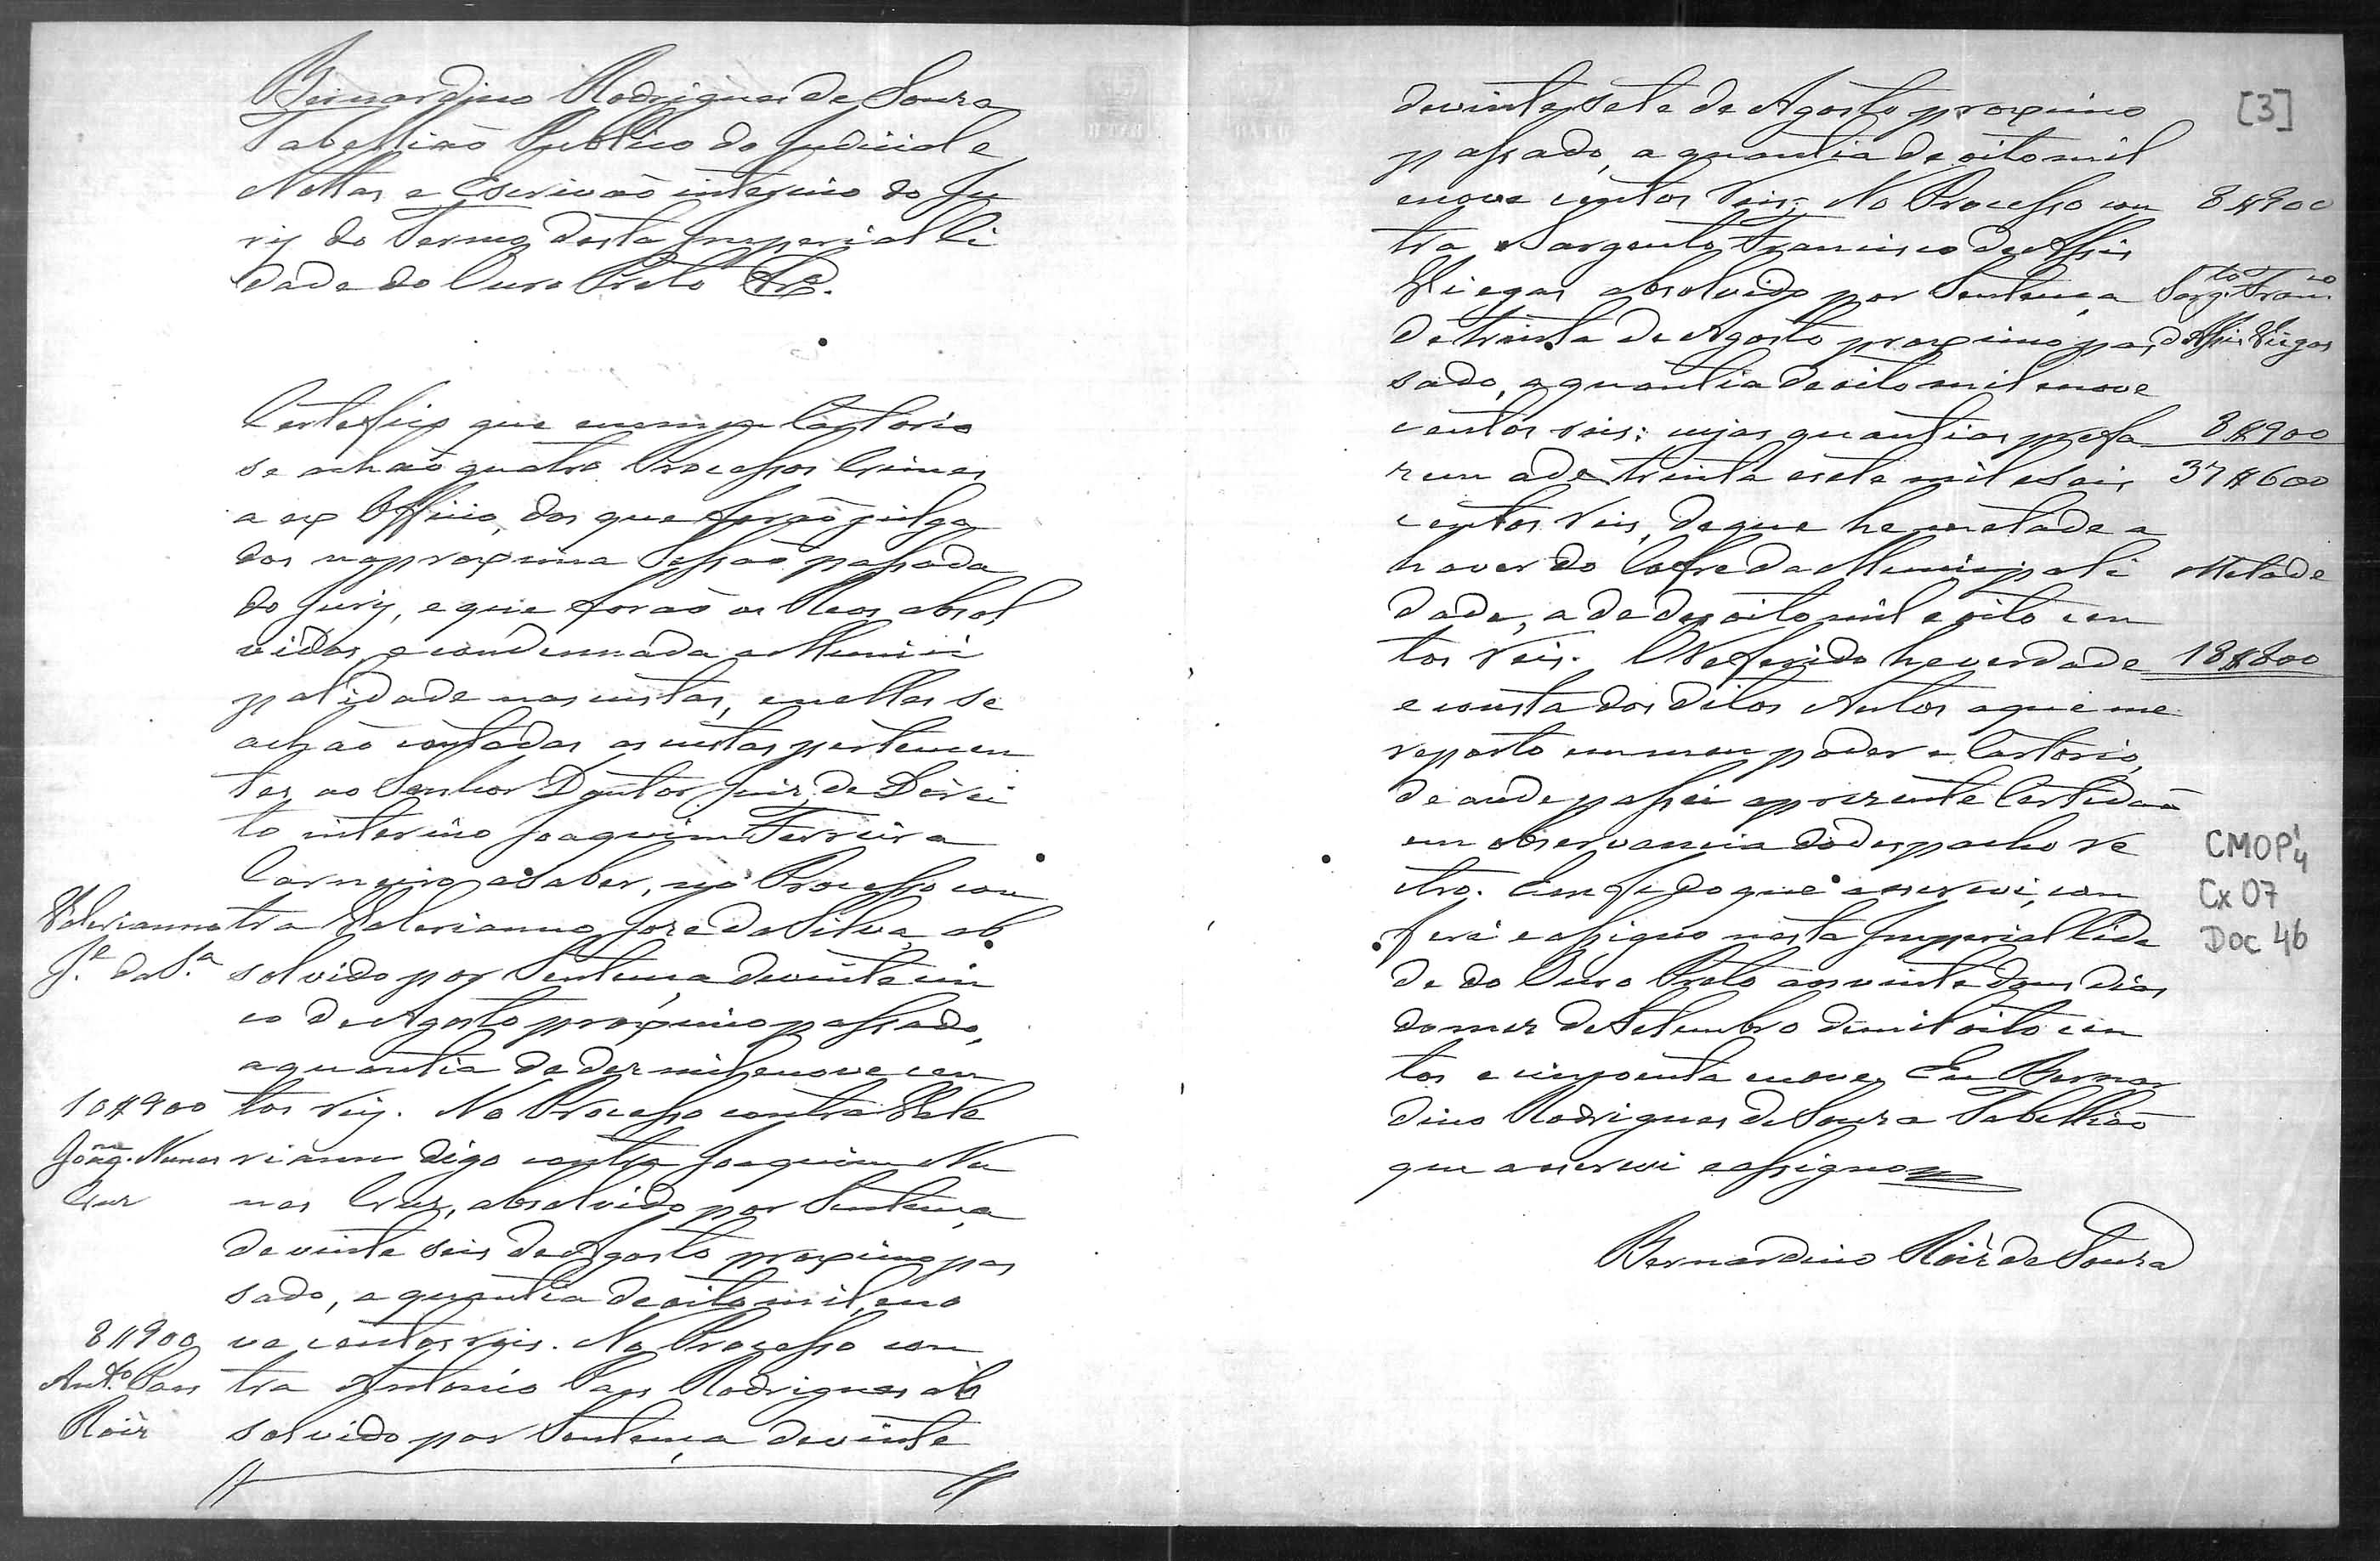 Bernardino Rodrigues de Souza
Tabellião Publico do Judicial e
Nottas e Escrivão interino do Ju
ry do Termo desta Imperial Ci
dade do Ouro Preto &ª.
Certefico que em meu Cartorio
se achão quatro Processos Crimes
a ex Officio, dos que forão julga
dos na proxima Sessão passada
do Jury, e que forão os Reos absol
vidos, e condemnada a Munici
palidade nas custas, e nellas se
achão contadas as custas pertencen
tes ao Senhor Doutor Juiz de Direi
to interino Joaquim Ferreira
Carneiro a saber, no Processo con
Valerianno tra Valerianno Jozé da Silva, ab
Jᵉ. da Sª. solvido por Sentença de vinte cin
co de Agosto proximo passado,
a quantia de dez mil e nove cen
10$900 tos reis. No Processo contra Vale
Joaqᵐ. Nunes rianno digo contra Joaquim Nu
Cruz nes Cruz, absolvido por Sentença
de vinte seis de Agosto proximo pas
sado, a quantia de oito mil, e no
8$900 ve centos reis. No Processo con
Antº. Paes tra Antonio Paes Rodrigues ab
Roiz solvido por Sentença de vinte
[3]
de vinte sete de Agosto proximo
passado, a quantia de oito mil
e nove centos reis; No Processo con 8$900
tra o Sargento Francisco de Assis
Viegas absolvido por Sentença Sargᵗᵒ. Franᶜᵒ.
de trinta de Agosto proximo pas d'Assis Viegas
sado, a quantia de oito mil e nove
centos reis: cujas quantias prefa 8$900
zem a de trinta e sete mil e seis 37$600
centos reis, de que he metade a
haver do Cofre da Municipali Metade
dade, a de dezoito mil e oito cen
tos reis. O Referido he verdade 18$800
e consta dos ditos Autos a que me
reporto em meu poder e Cartorio,
de onde passei a prezente Certidão
em observancia do despacho re
tro. Em fé do que a escrevi, con
feri e assigno nesta Imperial Cida
de do Ouro Preto aos vinte dous dias
do mez de Setembro de mil oito cen
tos e cincoenta e nove. Eu Bernar
dino Rodrigues de Souza Tabellião
que a escrevi e assigno
Bernardino Roiz de Souza
CMOP¹4
Cx 07
Doc 46